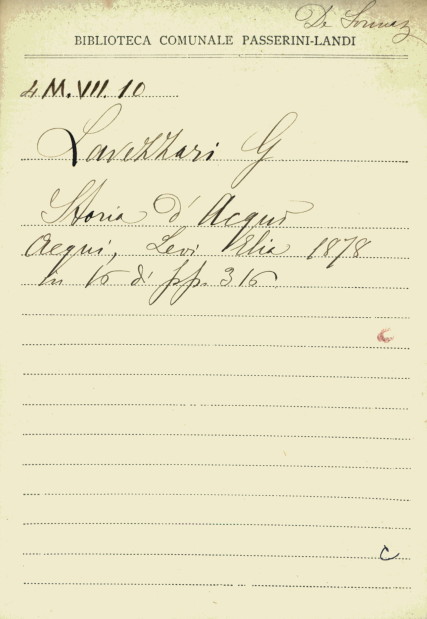 De Sonnaz
BIBLIOTECA COMUNALE PASSERINI-LANDI
4 M. VII. 10
Lavezzari G
Storia d'Acqui
Acqui, Levi Elia 1878
in 16 di pp. 316
C